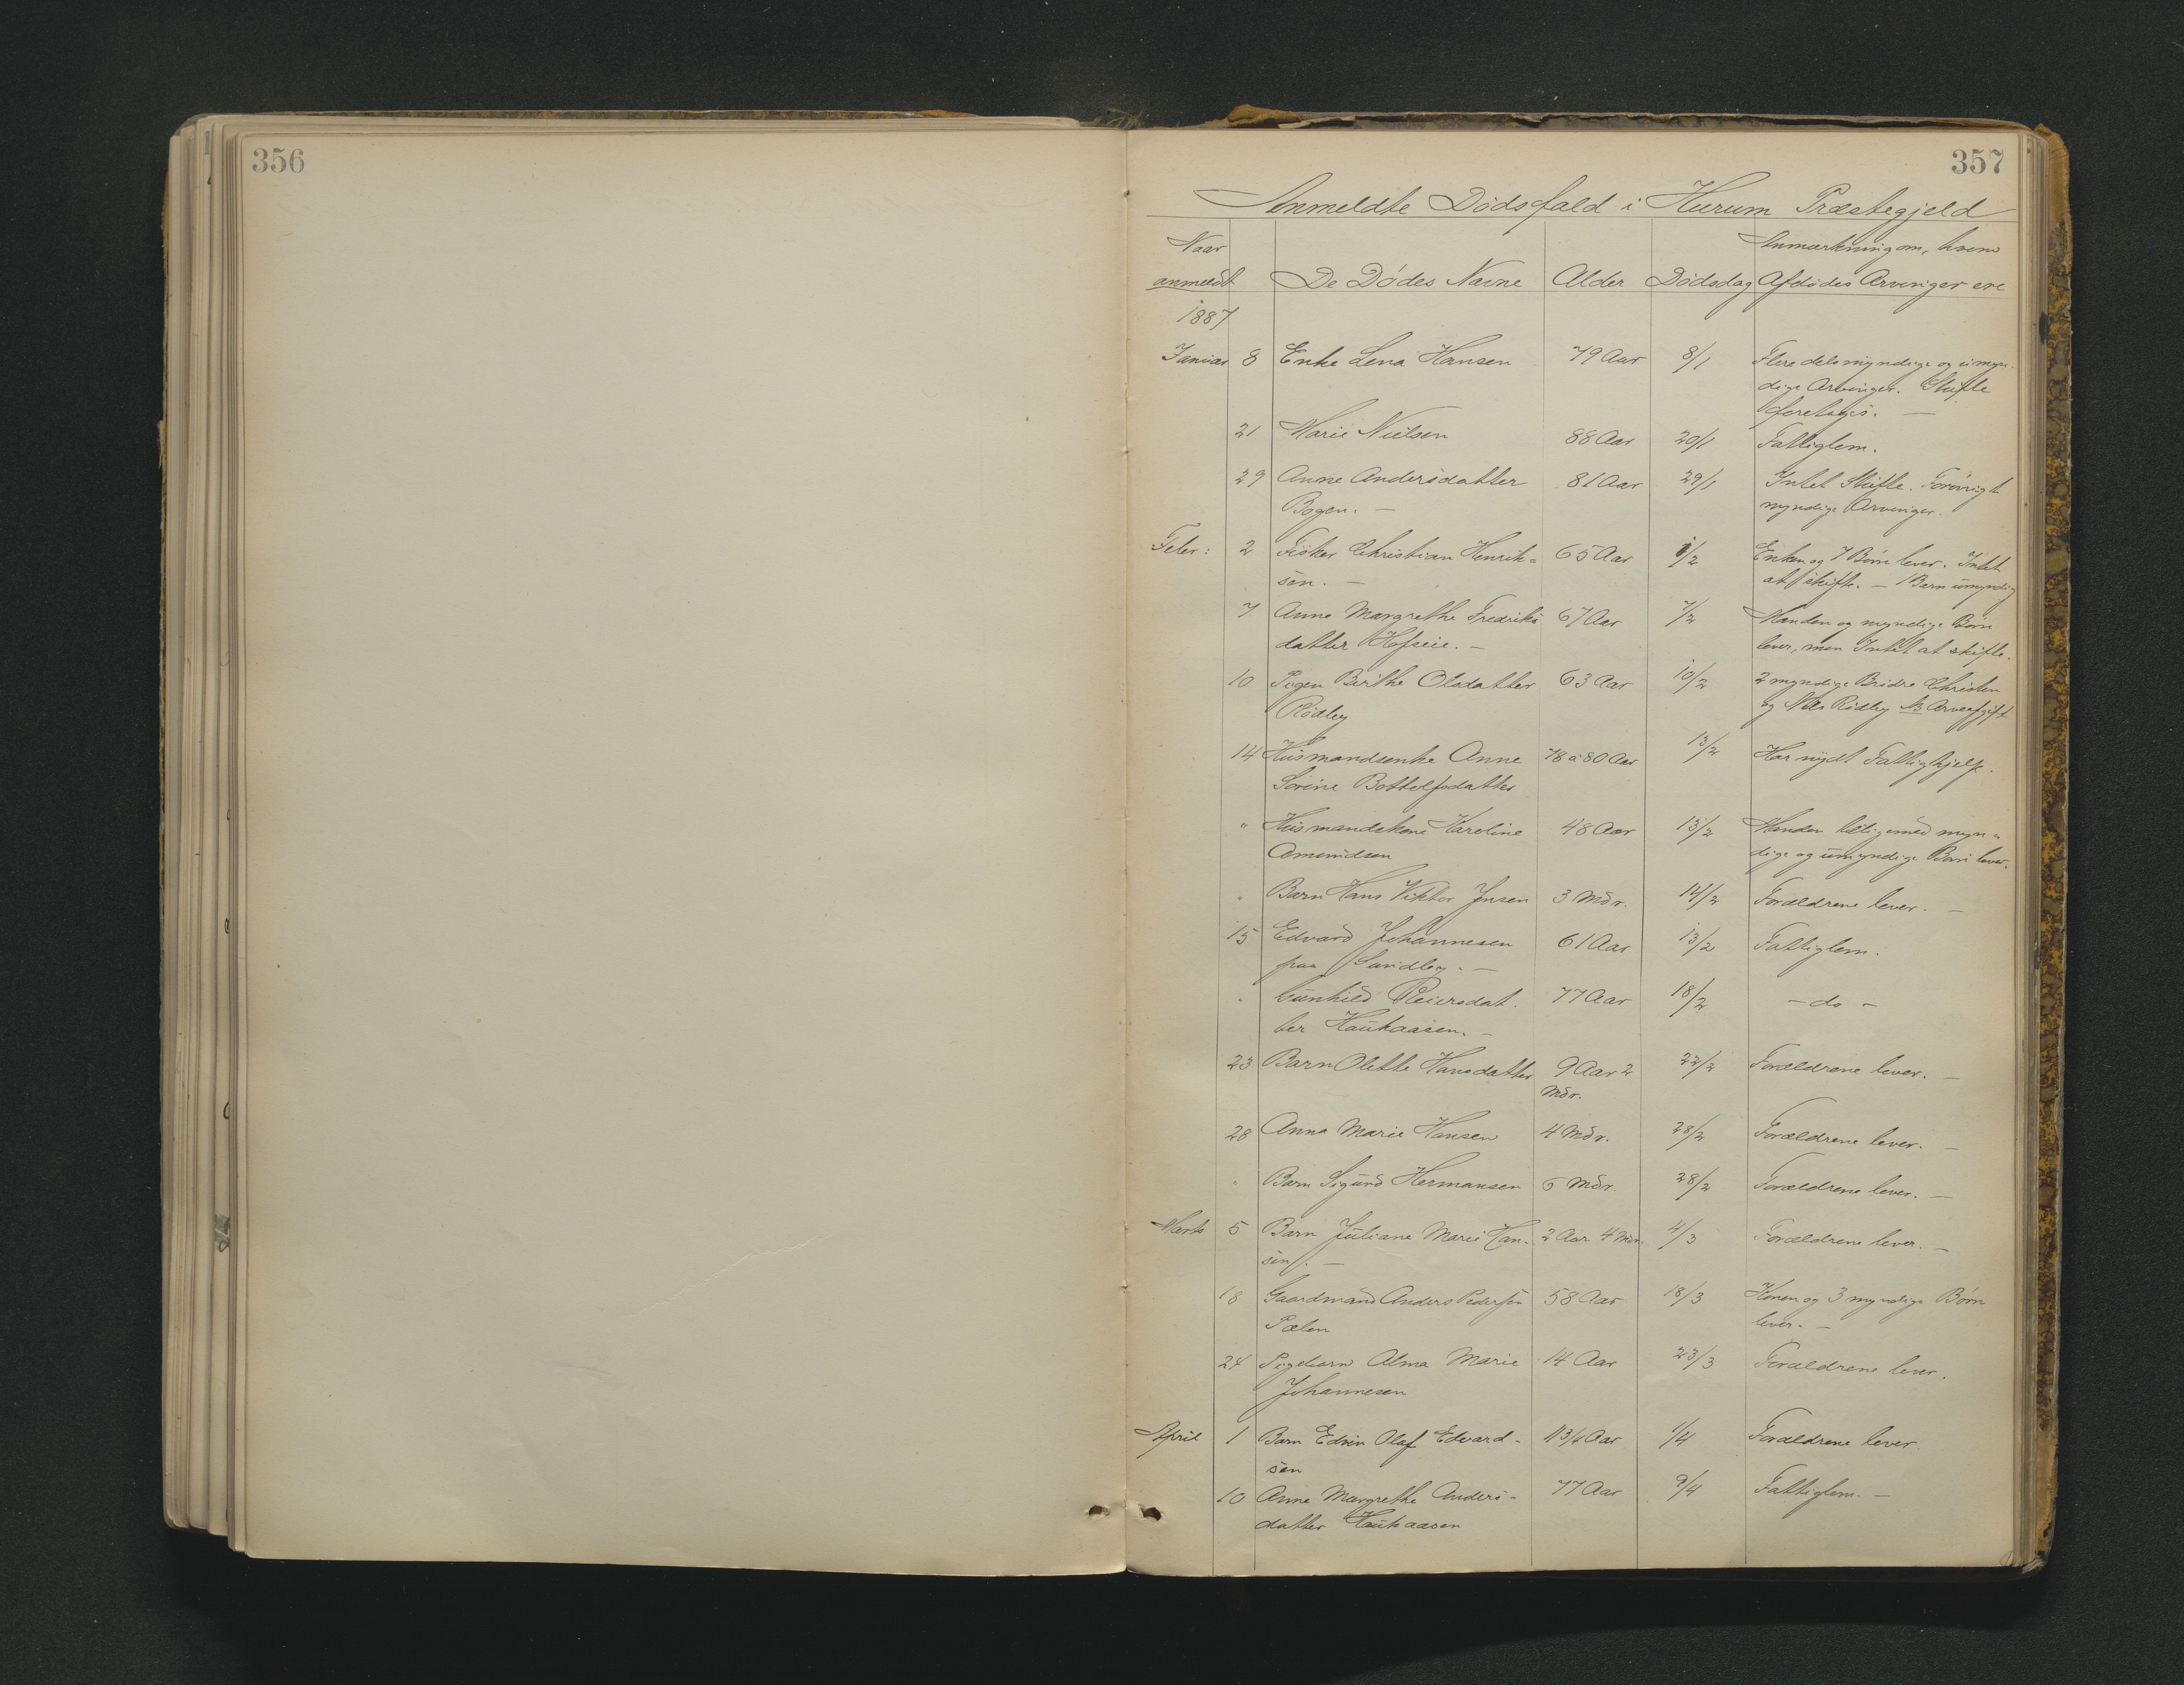 356
357
Anmeldte Dødsfald i Hurum Præstegjeld
Naar Anmærkning om, hvem
anmeldt De Dødes Navne Alder Dødsdag Afdødes Arvinger ere
1887
Januar 8 Enke Lena Hansen 79 Aar 8/1 Flere dels myndige og umyn-
dige Arvinger. Skifte
foretages. —
21 Marie Nielsen 88 Aar 20/1 Fattiglem.
29 Anne Andersdatter 81 Aar 29/1 Intet Skifte. Forøvrigt
Bogen. — myndige Arvinger.
Febr: 2 Fisker Christian Henrik= 65 Aar 1/2 Enken og 7 Børn lever. Intet
sen. — at skifte. — 1 Barn umyndig
7 Anne Margrethe Fredriks 67 Aar 7/2 Manden og myndige Børn
datter Hofseie. — lever, men Intet at skifte.
10 Pigen Berthe Olsdatter 63 Aar 10/2 2 myndige Brødre Christen
Rødley og Nils Rødley NB Arveafgift
14 Husmandsenke Anne 78 à 80 Aar 13/2 Har nydt Fattighjelp.
Sørine Bottolfsdatter
" Husmandskone Karoline 48 Aar 13/2 Manden tilligemed myn=
Amundsen dige og umyndige Børn lever.
" Barn Hans Viktor Jnsen 3 Mdr. 14/2 Forældrene lever. —
15 Edvard Johannesen 61 Aar 13/2 Fattiglem.
paa Sundby. —
" Gunhild Reiersdat. 77 Aar 18/2 - do -
ter Haukaasen. —
23 Barn Olette Hansdatter 9 Aar 2 22/2 Forældrene lever. —
Mdr.
28 Anna Marie Hansen 4 Mdr. 28/2 Forældrene lever. —
" Barn Sigurd Hermansen 6 Mdr. 28/2 Forældrene lever. —
Marts 5 Barn Juliane Marie Han- 2 Aar 4 Mdr. 4/3 Forældrene lever. —
sen. —
18 Gaardmand Anders Pedersen 58 Aar 18/3 Konen og 3 myndige Børn
lever. —
24 Pigebarn Alma Marie 14 Aar 23/3 Forældrene lever.
Johannesen
April 1 Barn Edvin Olaf Edvard- 1 3/4 Aar 1/4 Forældrene lever.
sen
10 Anne Margrethe Anders- 77 Aar 9/4 Fattiglem. —
datter Haukaasen